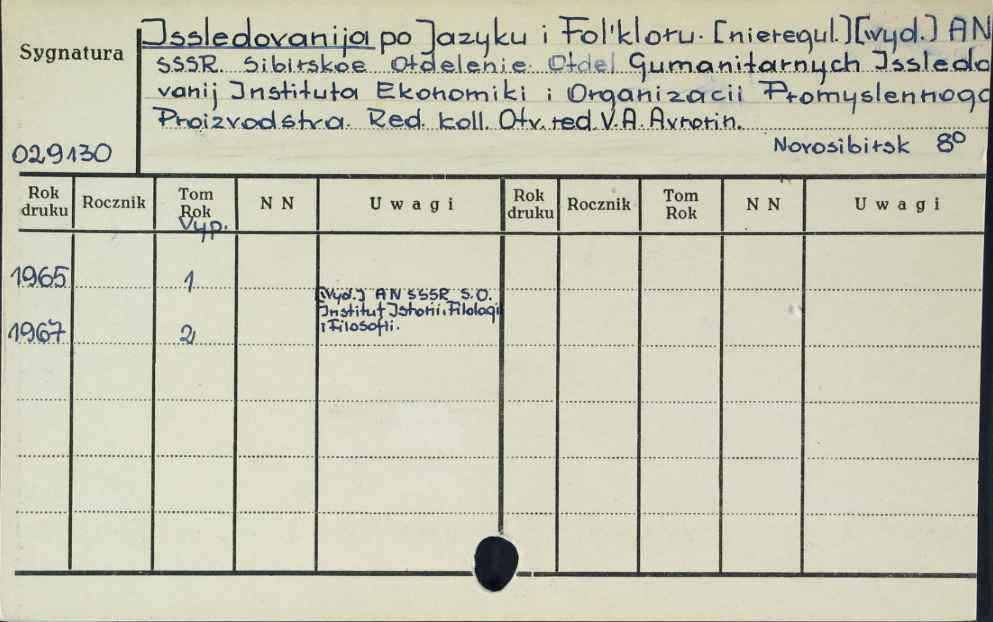 Sygnatura
Issledovanija po Jazyku i Fol'kloru. [nieregul.][wyd.] AN
SSSR. Sibirskoe Otdelenie. Otdel Gumanitarnych Issledo
vanij Instituta Ekonomiki i Organizacii Promyslennogo
Proizvodstva. Red. koll. Otv. red. V.A. Avrorin.
029130
Novosibirsk 8°
Rok druku Rocznik Tom Rok N N Uwagi Rok druku Rocznik Tom Rok N N Uwagi
Vyp.
1965 1
[Wyd.] AN SSSR S.O.
Institut Istorii, Filologii
i Filosofii.
1967 2